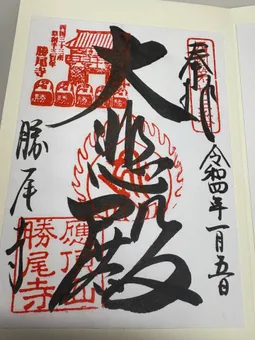 奉拝
令和四年一月五日
大悲殿
勝尾寺
西国二十三番
勝尾寺
應頂山
勝尾寺